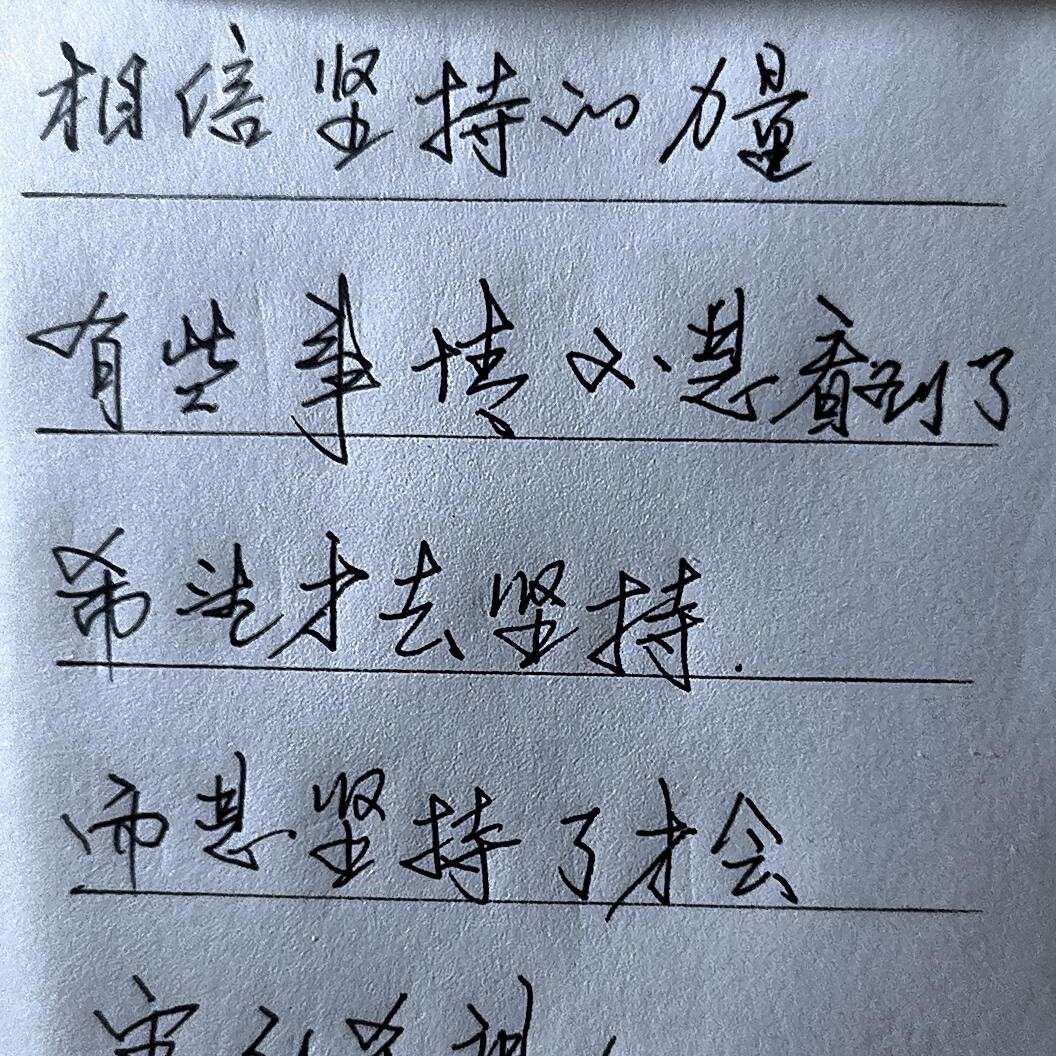 相信坚持的力量
有些事情不是看到了
希望才去坚持.
而是坚持了才会